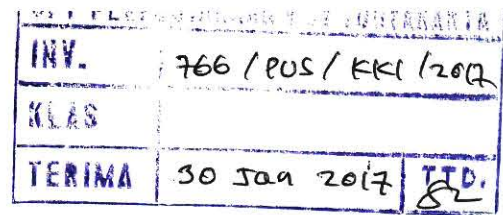 INV. 766 / PUS / KKI / 2017
KLAS
TERIMA 30 Jan 2017 TTD.